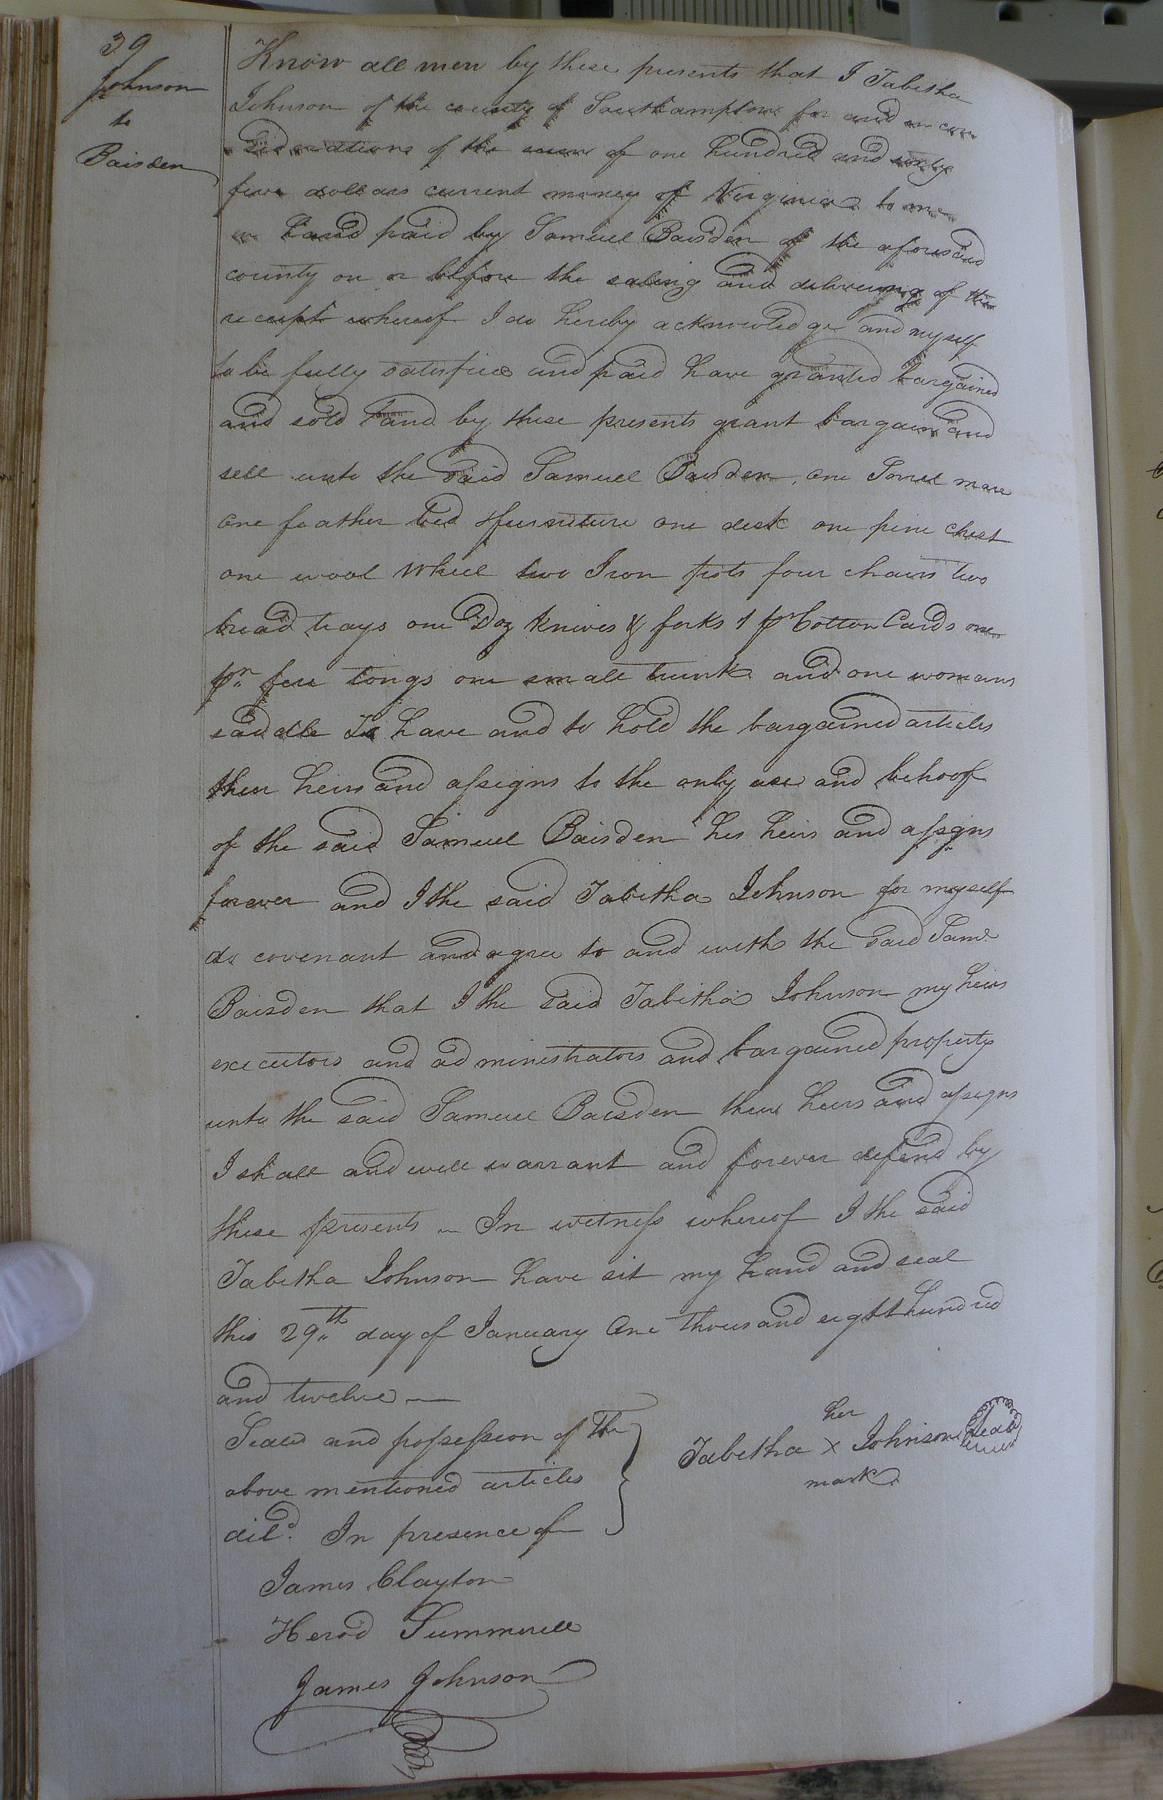 39
Johnson
to
Baisden
Know all men by these presents that I Tabitha
Johnson of the county of Southampton for and in con
siderations of the sum of one hundred and
five dollars current money of Virginia to me
in hand paid by Samuel Baisden of the aforesaid
county on or before the saling and delivering of the
receipt whereof I do hereby acknowledge and myself
to be fully satisfied and paid have granted bargained
and sold and by these presents grant bargain and
sell unto the said Samuel Baisden, one Sorrel mare
one feather bed & furniture one desk one pine chest
one wool wheel two Iron pots four chairs two
bread trays one Doz knives & forks 1 pr Cotton Cards one
pr. fire tongs one small trunk and one womans
saddle To have and to hold the bargained articles
their heirs and assigns to the only use and behoof
of the said Samuel Baisden his heirs and assigns
forever and I the said Tabitha Johnson for myself
do covenant and agree to and with the said Saml
Baisden that I the said Tabitha Johnson my heirs
executors and administrators and bargained property
unto the said Samuel Baisden their heirs and assigns
I shall and will warrant and forever defend by
these presents – In witness whereof I the said
Tabitha Johnson have sit my hand and seal
this 29th day of January One thousand eight hundred
and twelve —
Seald and possession of the
above mentioned articles
deld. In presence of
her
Tabitha x Johnson Seal
mark
James Clayton
Herod Summerell
James Johnson